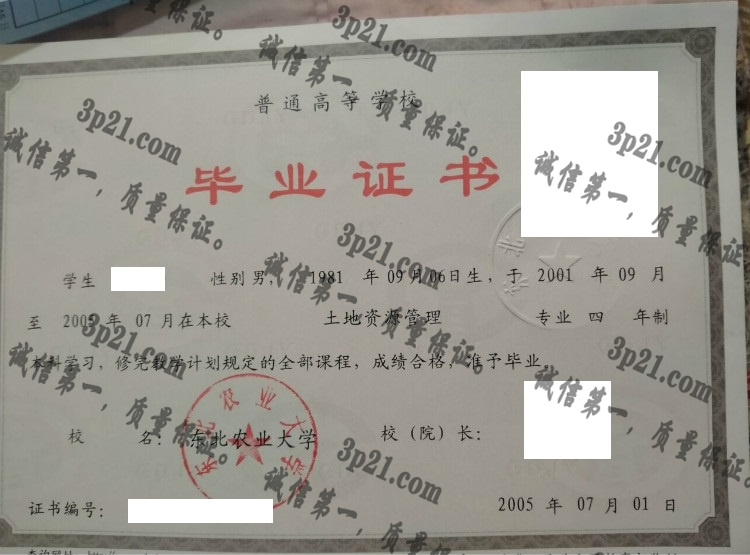 3p21.com
诚信第一，质量保证。
普通高等学校
毕业证书
学生 性别男， 1981 年 09月06日生，于 2001 年 09 月
至 2005 年 07 月在本校 土地资源管理 专业 四 年制
本科学习，修完教学计划规定的全部课程，成绩合格，准予毕业。
校 名： 东北农业大学 校（院）长：
东北农业大学
证书编号： 2005 年 07 月 01 日
3p21.com
诚信第一，质量保证。
3p21.com
诚信第一，质量保证。
3p21.com
诚信第一，质量保证。
3p21.com
诚信第一，质量保证。
3p21.com
诚信第一，质量保证。
3p21.com
诚信第一，质量保证。
3p21.com
诚信第一，质量保证。